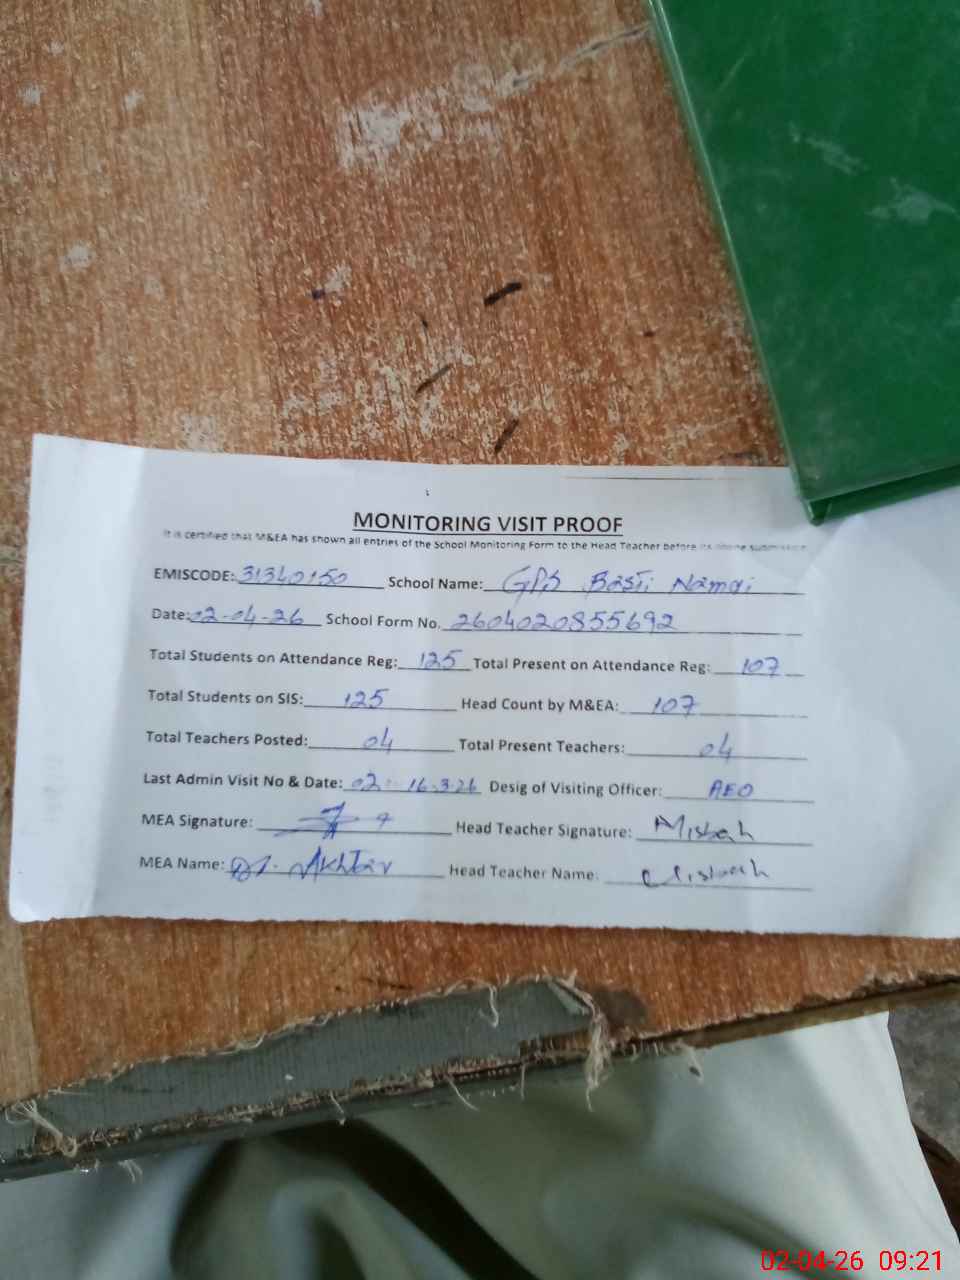 MONITORING VISIT PROOF
It is certified that M&EA has shown all entries of the School Monitoring Form to the Head Teacher before its online submission
EMISCODE: 31340150 School Name: GPS Basti Namdi
Date: 02-04-26 School Form No. 2604020855692
Total Students on Attendance Reg: 125 Total Present on Attendance Reg: 107
Total Students on SIS: 125 Head Count by M&EA: 107
Total Teachers Posted: 04 Total Present Teachers: 04
Last Admin Visit No & Date: 02 16.3.26 Desig of Visiting Officer: AEO
MEA Signature: Head Teacher Signature: Misbah
MEA Name: Akhtar Head Teacher Name: Misbah
02-04-26 09:21